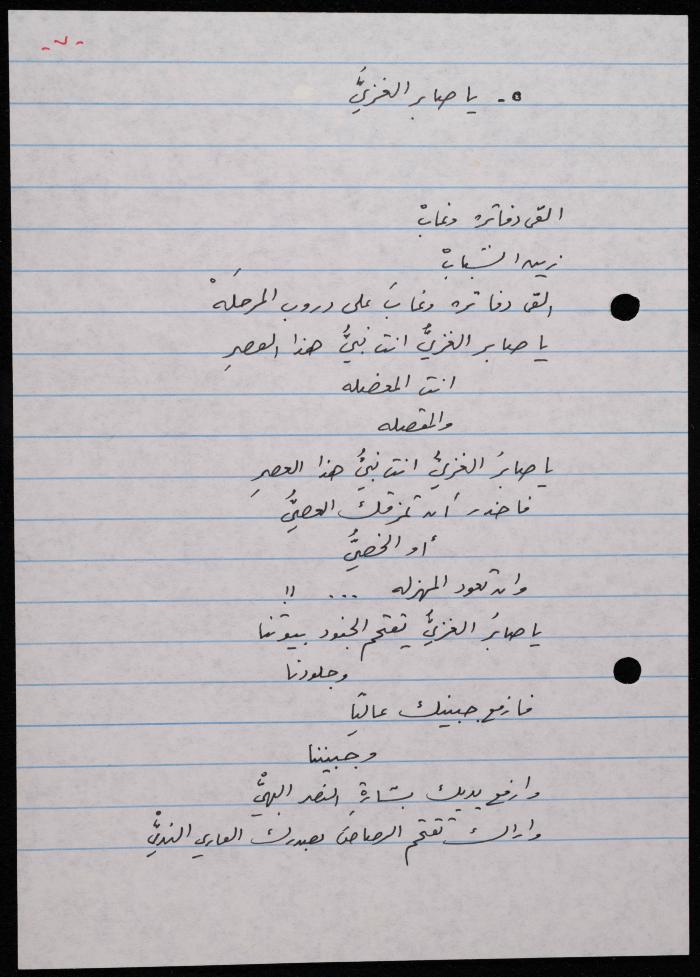 -٧-
٥- يا صابر الغزيَّ
القى دفاتره وغابْ
زين الشبابْ
القى دفاتره وغابَ على دروب المرحَلَهْ
يا صابر الغزيُّ انت نبيُّ هذا العصرِ
انت المعضله
والمقصله
يا صابرَ الغزيُّ انت نبيُّ هذا العصرِ
فاحذر أن تمزقك العصيُّ
أو الخصيُّ
وان تعود المهزله ... !!
يا صابرُ الغزيُّ يقتحم الجنود بيوتنا
وجلودنا
فارفع جبينك عاليا
وجبيننا
وارفع يديك بشارةِ النصر البهيّْ
واراك تقتحم الرصاصَ بصدرك العاري النديّْ